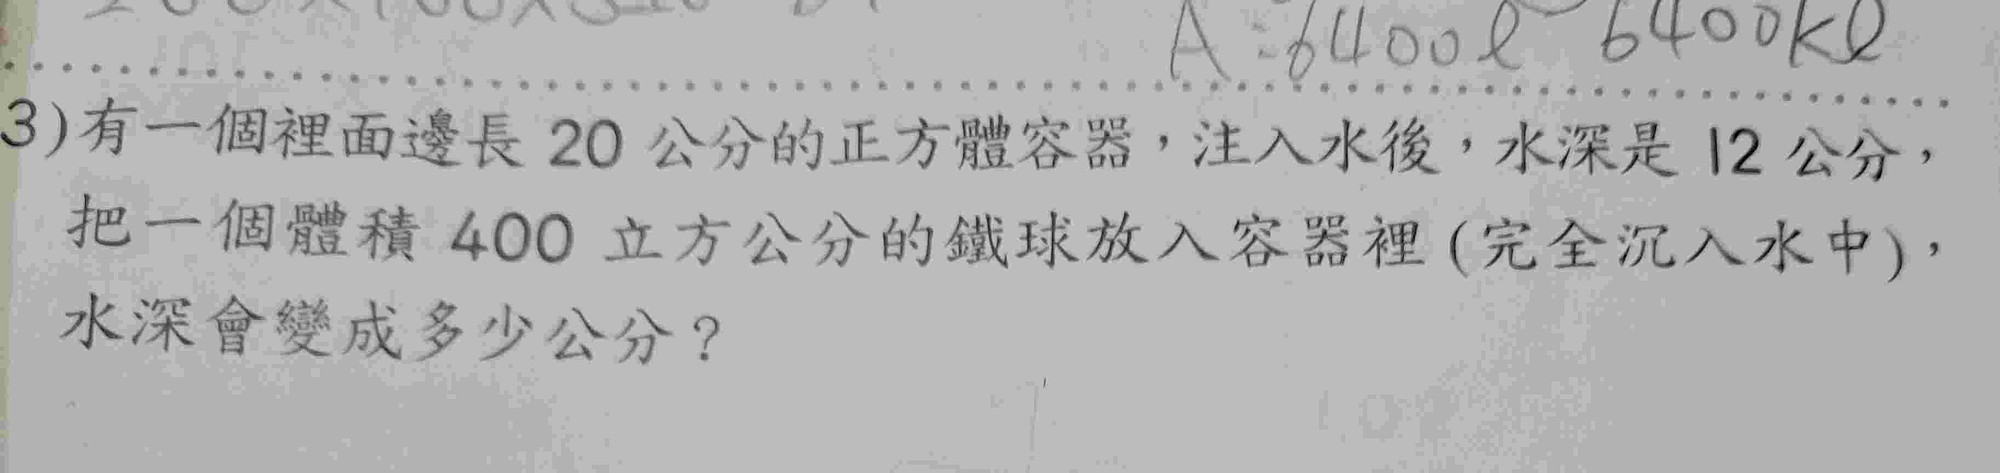 A:6400ℓ 6400kℓ
3)有一個裡面邊長 20 公分的正方體容器，注入水後，水深是 12 公分，
把一個體積 400 立方公分的鐵球放入容器裡(完全沉入水中)，
水深會變成多少公分？